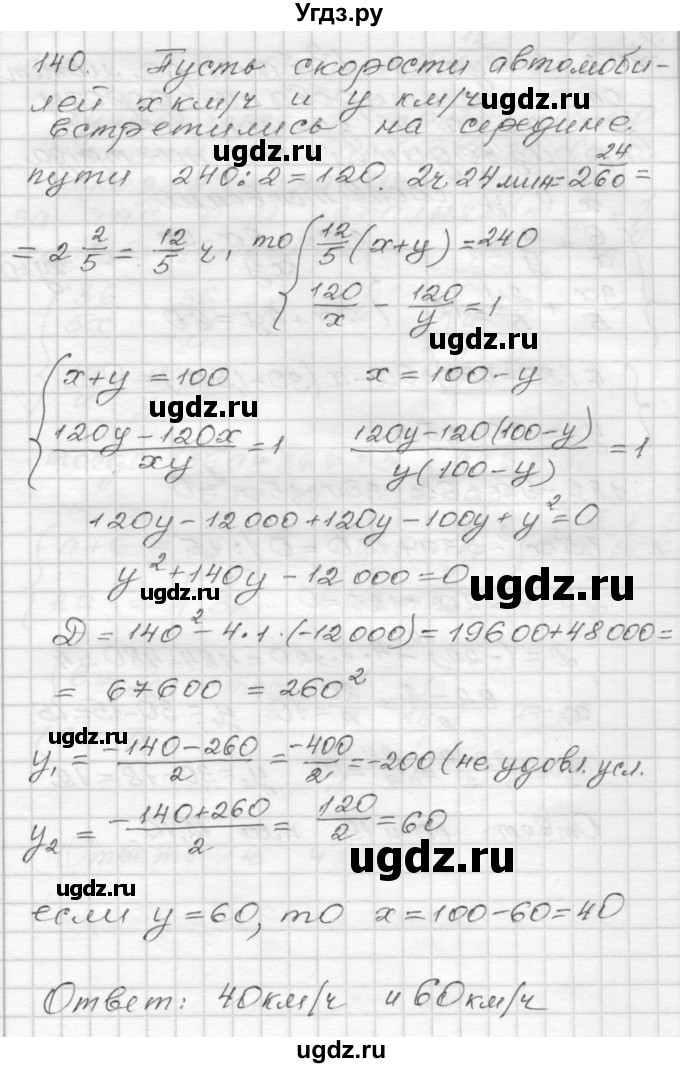 Угдз.ру
140. Пусть скорости автомоби-
лей x км/ч и y км/ч
встретились на середине.
ugdz.ru
пути 240:2=120. 2ч 24мин=2 24/60 =
= 2 2/5 = 12/5 ч, то { 12/5 (x+y) = 240
120/x - 120/y = 1
ugdz.ru
{ x+y = 100 x = 100-y
ugdz.ru
(120y-120x)/(xy) = 1 (120y-120(100-y))/(y(100-y)) = 1
120y - 12000 + 120y - 100y + y² = 0
y² + 140y - 12 000 = 0
ugdz.ru ugdz.ru
D = 140² - 4·1·(-12000) = 19600+48000 =
= 67600 = 260²
ugdz.ru
y₁ = (-140-260)/2 = -400/2 = -200 (не удовл. усл.
y₂ = (-140+260)/2 = 120/2 = 60
ugdz.ru
ugdz.ru
если y = 60, то x = 100-60 = 40
Ответ: 40км/ч и 60км/ч
ugdz.ru